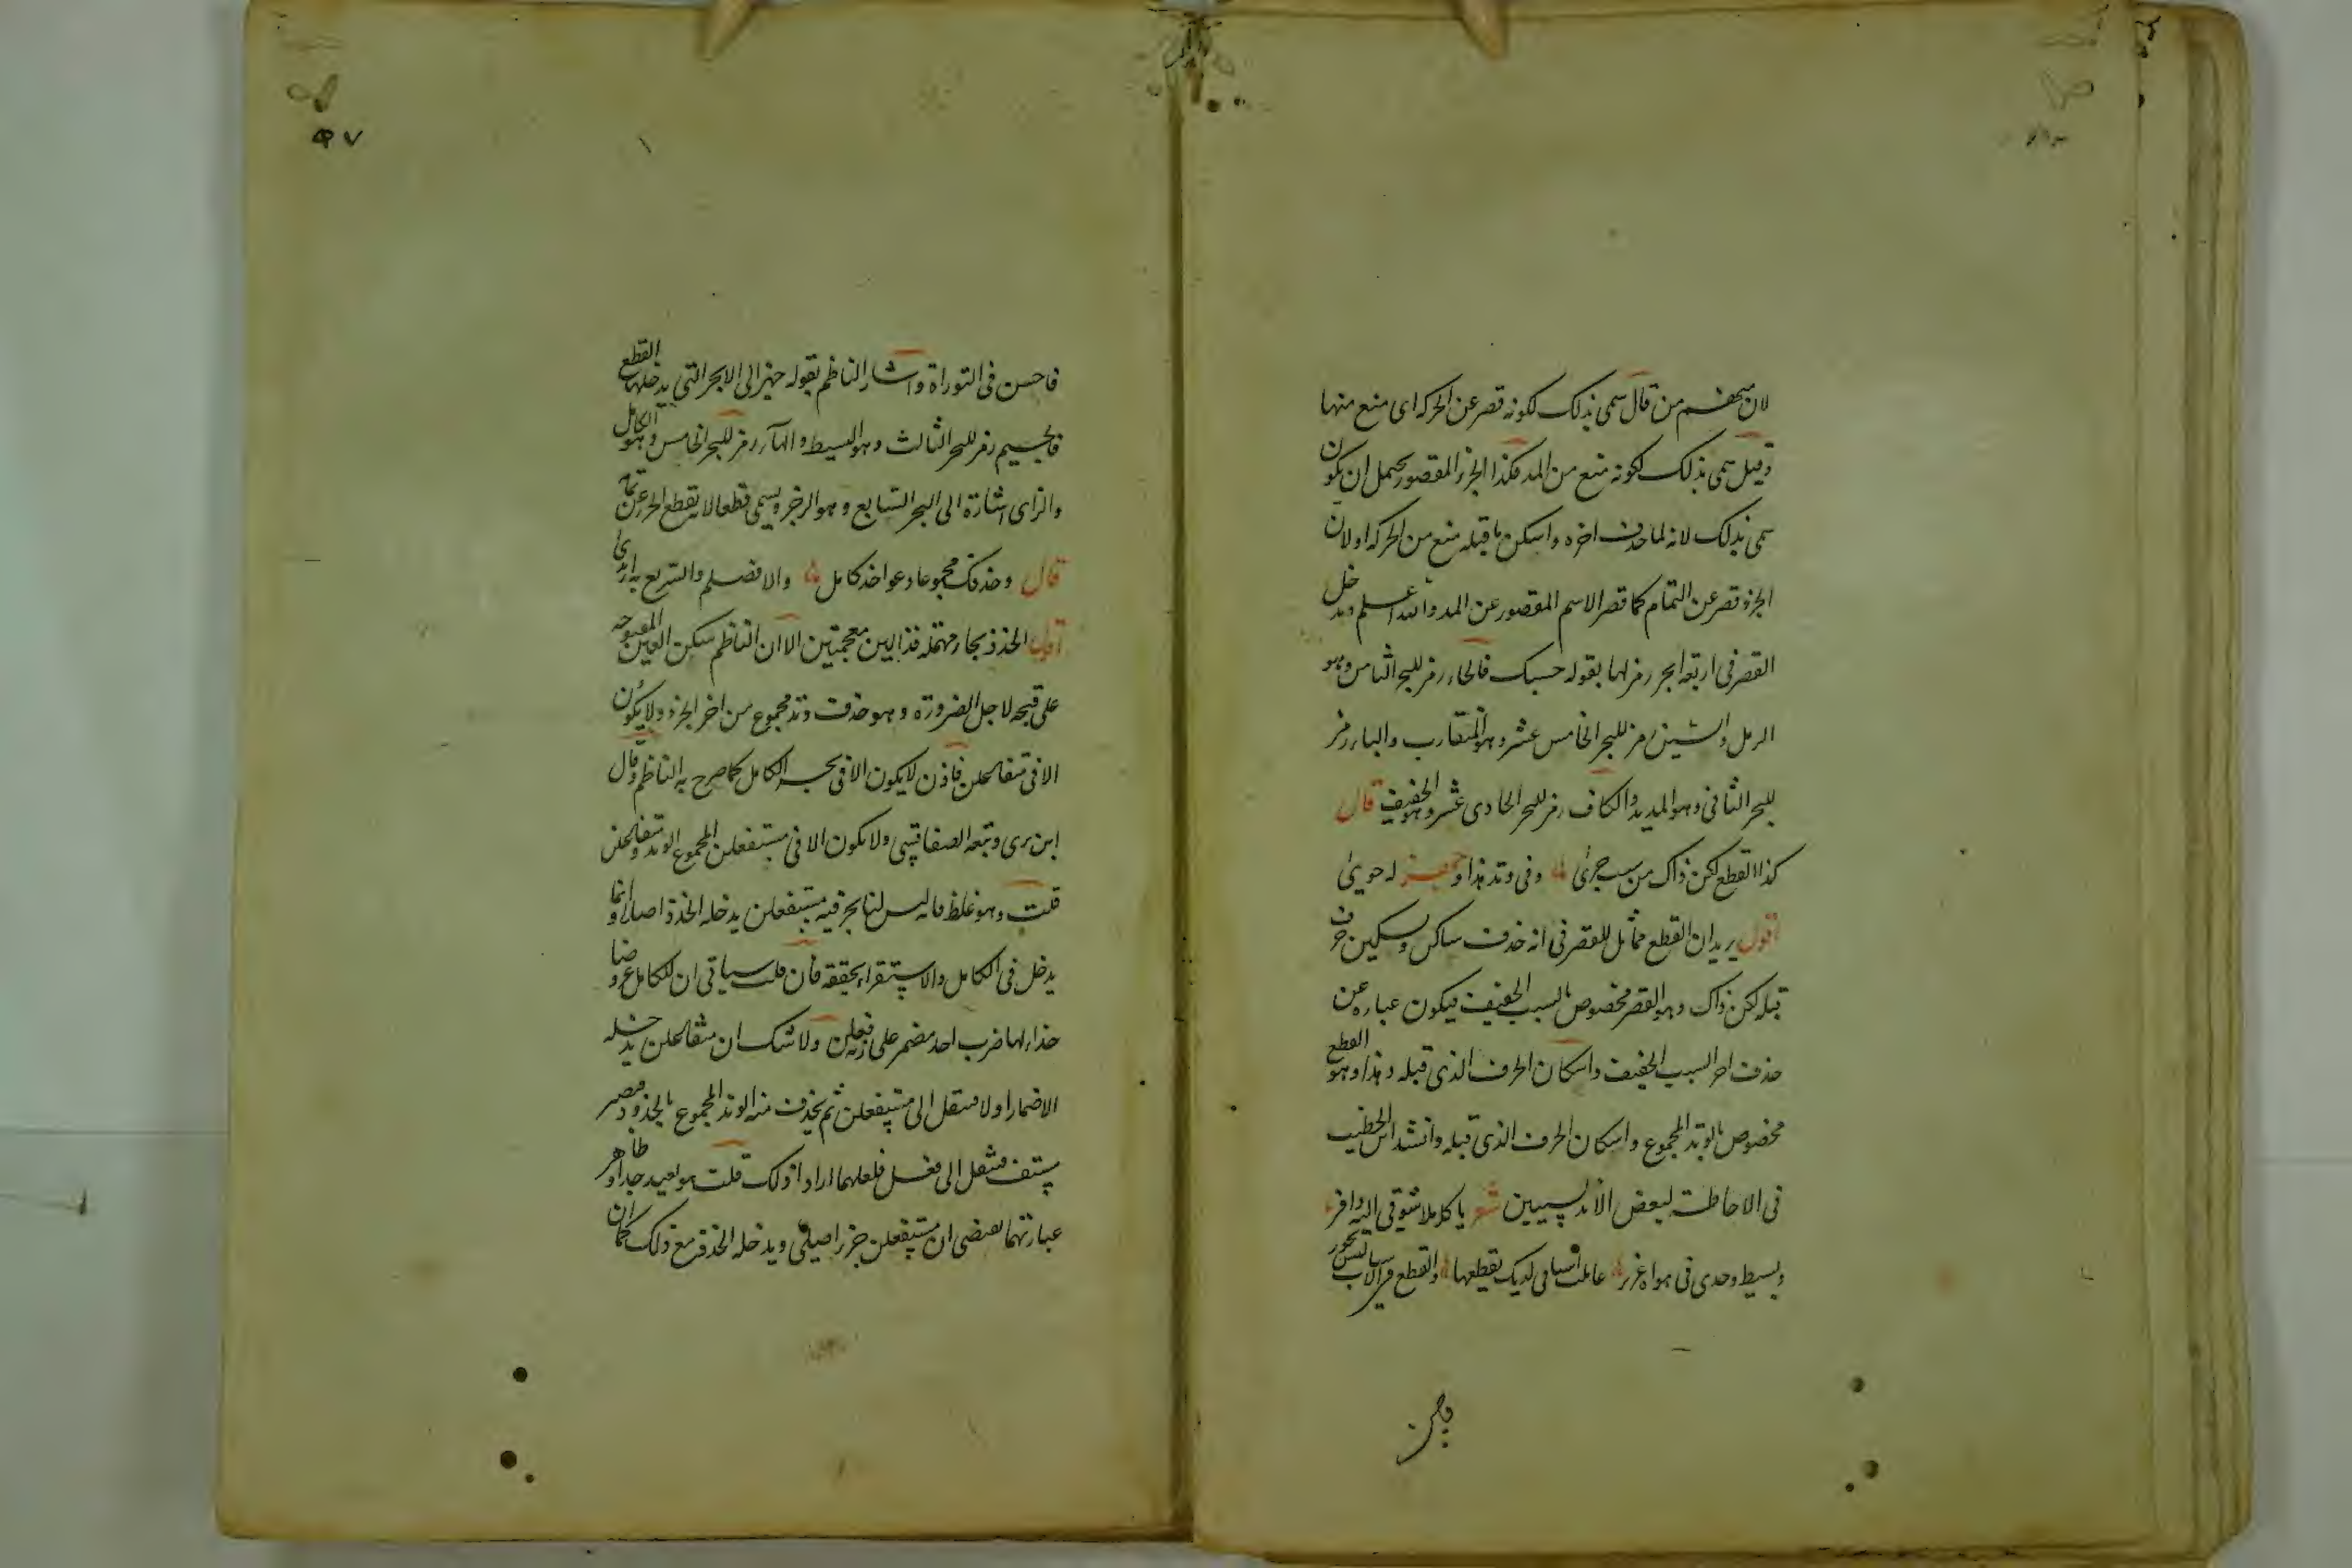 لان بعضهم من قال سمى بذلك لكونه قصر عن الحركه اى منع منها
وقيل سمى بذلك لكونه منع من المد فكذا الجزء المقصور يحمل ان يكون
سمى بذلك لانه لما حذف اخره واسكن ما قبله منع من الحركه او لان
الجزء قصر عن التمام كما قصر الاسم المقصور عن المد والله اعلم ويدخل
القصر فى اربعه ابحر رمز لها بقوله حسبك فالحاء رمز للبحر الثامن وهو
الرمل والشين رمز للبحر الخامس عشر وهو المتقارب والباء رمز
للبحر الثانى وهو المديد والكاف رمز للبحر الحادى عشر وهو الخفيف قال
كذا القطع لكن ذاك من سبب جرىٰ وفى وتد هذا و له حوىٰ
اقول يريد ان القطع مماثل للقصر فى انه حذف ساكن وتسكين حرف
قبله لكن ذاك وهو القصر مخصوص بالسبب الخفيف فيكون عباره عن
حذف اخر السبب الخفيف واسكان الحرف الذى قبله وهذا وهو القطع
مخصوص بالوتد المجموع واسكان الحرف الذى قبله وانشد ابن الخطيب
فى الاحاطة لبعض الاندلسيين شعر يا كاملا شوقى اليه وافر
وبسيط وجدى فى هواه عزيز عاملت اسبابى لديك بقطعها والقطع فى الاسباب ليس يجوز
فاحسن فى التوراة واشار الناظم بقوله جهز الى الابحر التى يدخلها القطع
فالجيم رمز للبحر الثالث وهو البسيط والهاء رمز للبحر الخامس وهو الكامل
والزاى اشارة الى البحر السابع وهو الرجز ويسمى قطعا لانه يقطع الجزء عن تمامه
قال وحذفك مجموعا دعوا حذ كامل والا فصلم والسريع به ارتدىٰ
اقول الحذذ بحاء مهملة فذالين معجمتين الا ان الناظم سكن العين المفتوحه
على قبحه لاجل الضرورة وهو حذف وتد مجموع من اخر الجزء ولا يكون
الا فى متفاعلن فاذن لا يكون الا فى بحر الكامل كما صرح به الناظم وقال
ابن برى وتبعه الصفاقسى ولا يكون الا فى مستفعلن المجموع الوتد ومتفاعلن
قلت وهو غلط فانه ليس لنا بحر فيه مستفعلن يدخله الحذذ اصلا وانما
يدخل فى الكامل والاستقراء يحققه فان قلت سياتى ان للكامل عروضا
حذاء لها ضرب احذ مضمر على زنة فعلن ولا شك ان متفاعلن يدخله
الاضمار اولا فينقل الى مستفعلن ثم يحذف منه الوتد المجموع بالحذذ فيصير
مستف فينقل الى فعلن فلعلهما ارادا ذلك قلت هو بعيد جدا وظاهر
عبارتهما يقتضى ان مستفعلن جزء اصلى ويدخله الحذذ مع ذلك كما ان